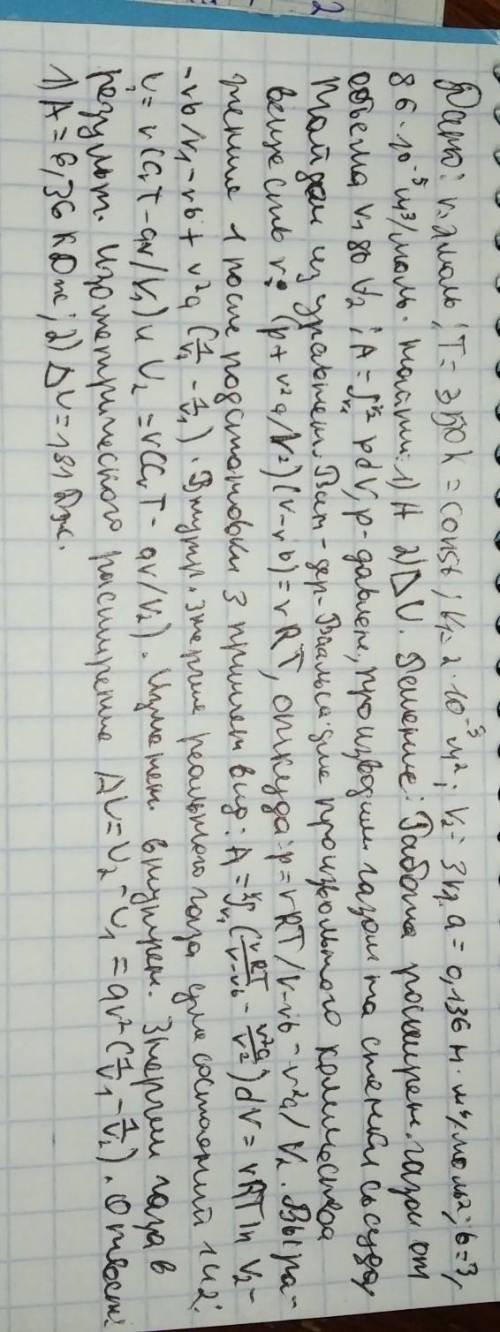 Дано: ν=2моль; T=350К=const; V₁=2·10⁻³м²; V₂=3V₁ a=0,136 Н·м⁴/моль²; b=3,
86·10⁻⁵м³/моль. Найти: 1) A 2) ΔU. Решение: Работа расширен. газом от
объема V₁ до V₂; A=∫ᵥ₁ⱽ² pdV, p-давлен, производим. газом на стенки сосуда,
Найдем из уравнен. Ван-дер-Ваальса для произвольного количества
веществ ν: (p+ν²a/V²)(V-νb)=νRT, откуда: p=νRT/V-νb-ν²a/V². Выра-
жение 1 после подстановки 3 примет вид: A=∫ᵥ₁ⱽ²(νRT/V-νb - ν²a/V²)dV=νRT ln V₂-
-νb/V₁-νb+ν²a(1/V₂-1/V₁). Внутр. энергия реального газа для состояний 1и2:
U₁=ν(CᵥT-aν/V₁) и U₂=ν(CᵥT-aν/V₂). Изменен. внутрен. Энергии газа в
результ. Изотермического расширения ΔU=U₂-U₁=aν²(1/V₁-1/V₂). Ответ:
1) A=6,36 кДж; 2) ΔU=181Дж.
2